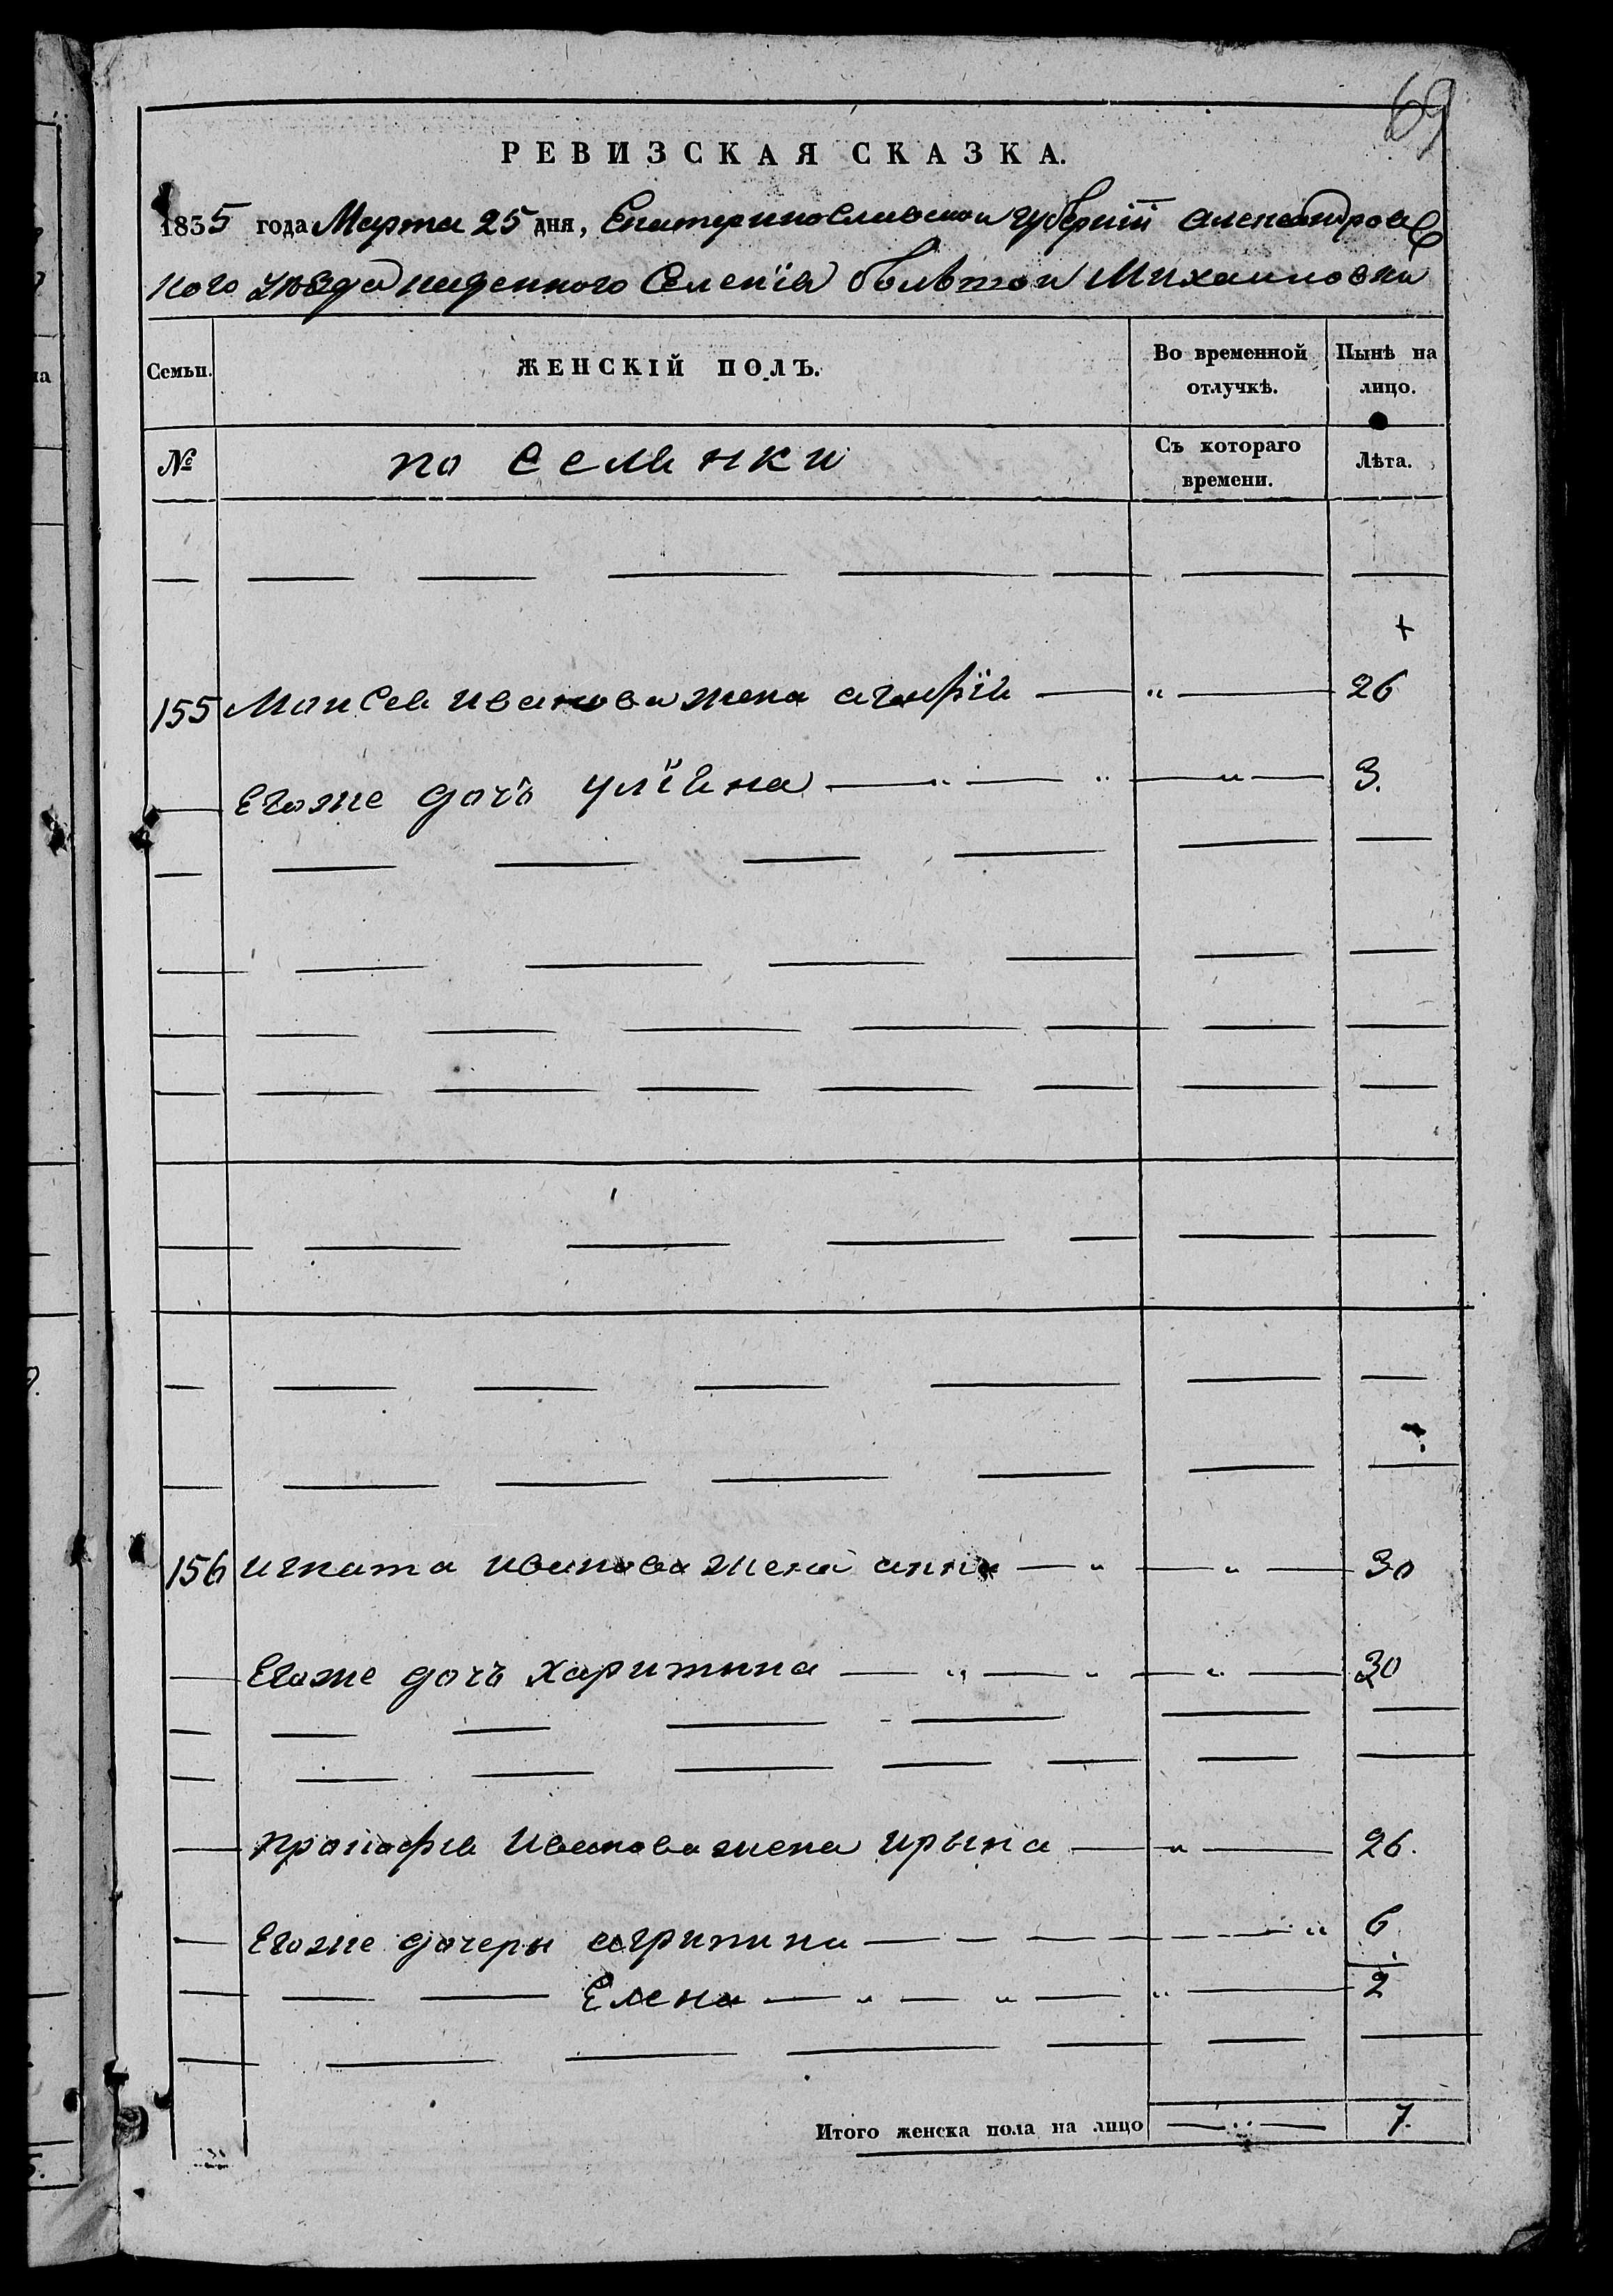 69
РЕВИЗСКАЯ СКАЗКА.
1835 года Марта 25 дня, Екатеринославской губернїи александровс
кого уѣзда казенного Селенїя большой Михаиловки
Семьи. ЖЕНСКІЙ ПОЛЪ. Во временной отлучкѣ. Нынѣ на лицо.
№ поселянки Съ котораго времени. Лѣта.
155 Моисея иванова жена агафїя — " — 26
— Егоже дочь улїяна — " — " — " — 3.
156 игната иванова жена анна — " — " — 30
— Егоже дочь харитина — " — " — " — 30
— прокофия иванова жена ирына — " — 26.
— Егоже дочеры агрипина — " 6
— Елена — " — " — " — 2
Итого женска пола на лицо — " — 7.